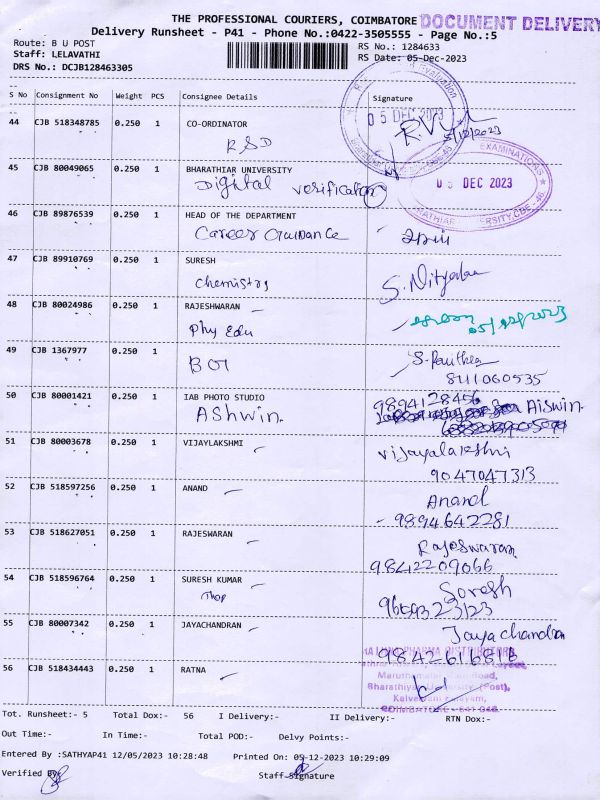 THE PROFESSIONAL COURIERS, COIMBATORE DOCUMENT DELIVERY
Delivery Runsheet - P41 - Phone No.:0422-3505555 - Page No.:5
Route: B U POST
Staff: LELAVATHI
DRS No.: DCJB128463305
RS No.: 1284633
RS Date: 05-Dec-2023
S No Consignment No Weight PCS Consignee Details Signature
44 CJB 518348785 0.250 1 CO-ORDINATOR
RSD
05 DEC 2023
5/12/2023
45 CJB 80049065 0.250 1 BHARATHIAR UNIVERSITY
Digital verification
EXAMINATIONS
05 DEC 2023
46 CJB 89876539 0.250 1 HEAD OF THE DEPARTMENT
Career Guidance
47 CJB 89910769 0.250 1 SURESH
Chemistry S. Nithya
48 CJB 80024986 0.250 1 RAJESHWARAN
Phy Edu 05/12/2023
49 CJB 1367977 0.250 1
BOT
8111060535
50 CJB 80001421 0.250 1 IAB PHOTO STUDIO 9894128456
Ashwin. Aiswin.
51 CJB 80003678 0.250 1 VIJAYLAKSHMI vijayalakshmi
9047047313
52 CJB 518597256 0.250 1 ANAND Anand
9894642281
53 CJB 518627051 0.250 1 RAJESWARAN Rajeswaran
9842209066
54 CJB 518596764 0.250 1 SURESH KUMAR Suresh
9659323123
55 CJB 80007342 0.250 1 JAYACHANDRAN Jayachandran
9842616818
56 CJB 518434443 0.250 1 RATNA
Tot. Runsheet:- 5 Total Dox:- 56 I Delivery:- II Delivery:- RTN Dox:-
Out Time:- In Time:- Total POD:- Delvy Points:-
Entered By :SATHYAP41 12/05/2023 10:28:48 Printed On: 05-12-2023 10:29:09
Verified By: Staff-Signature